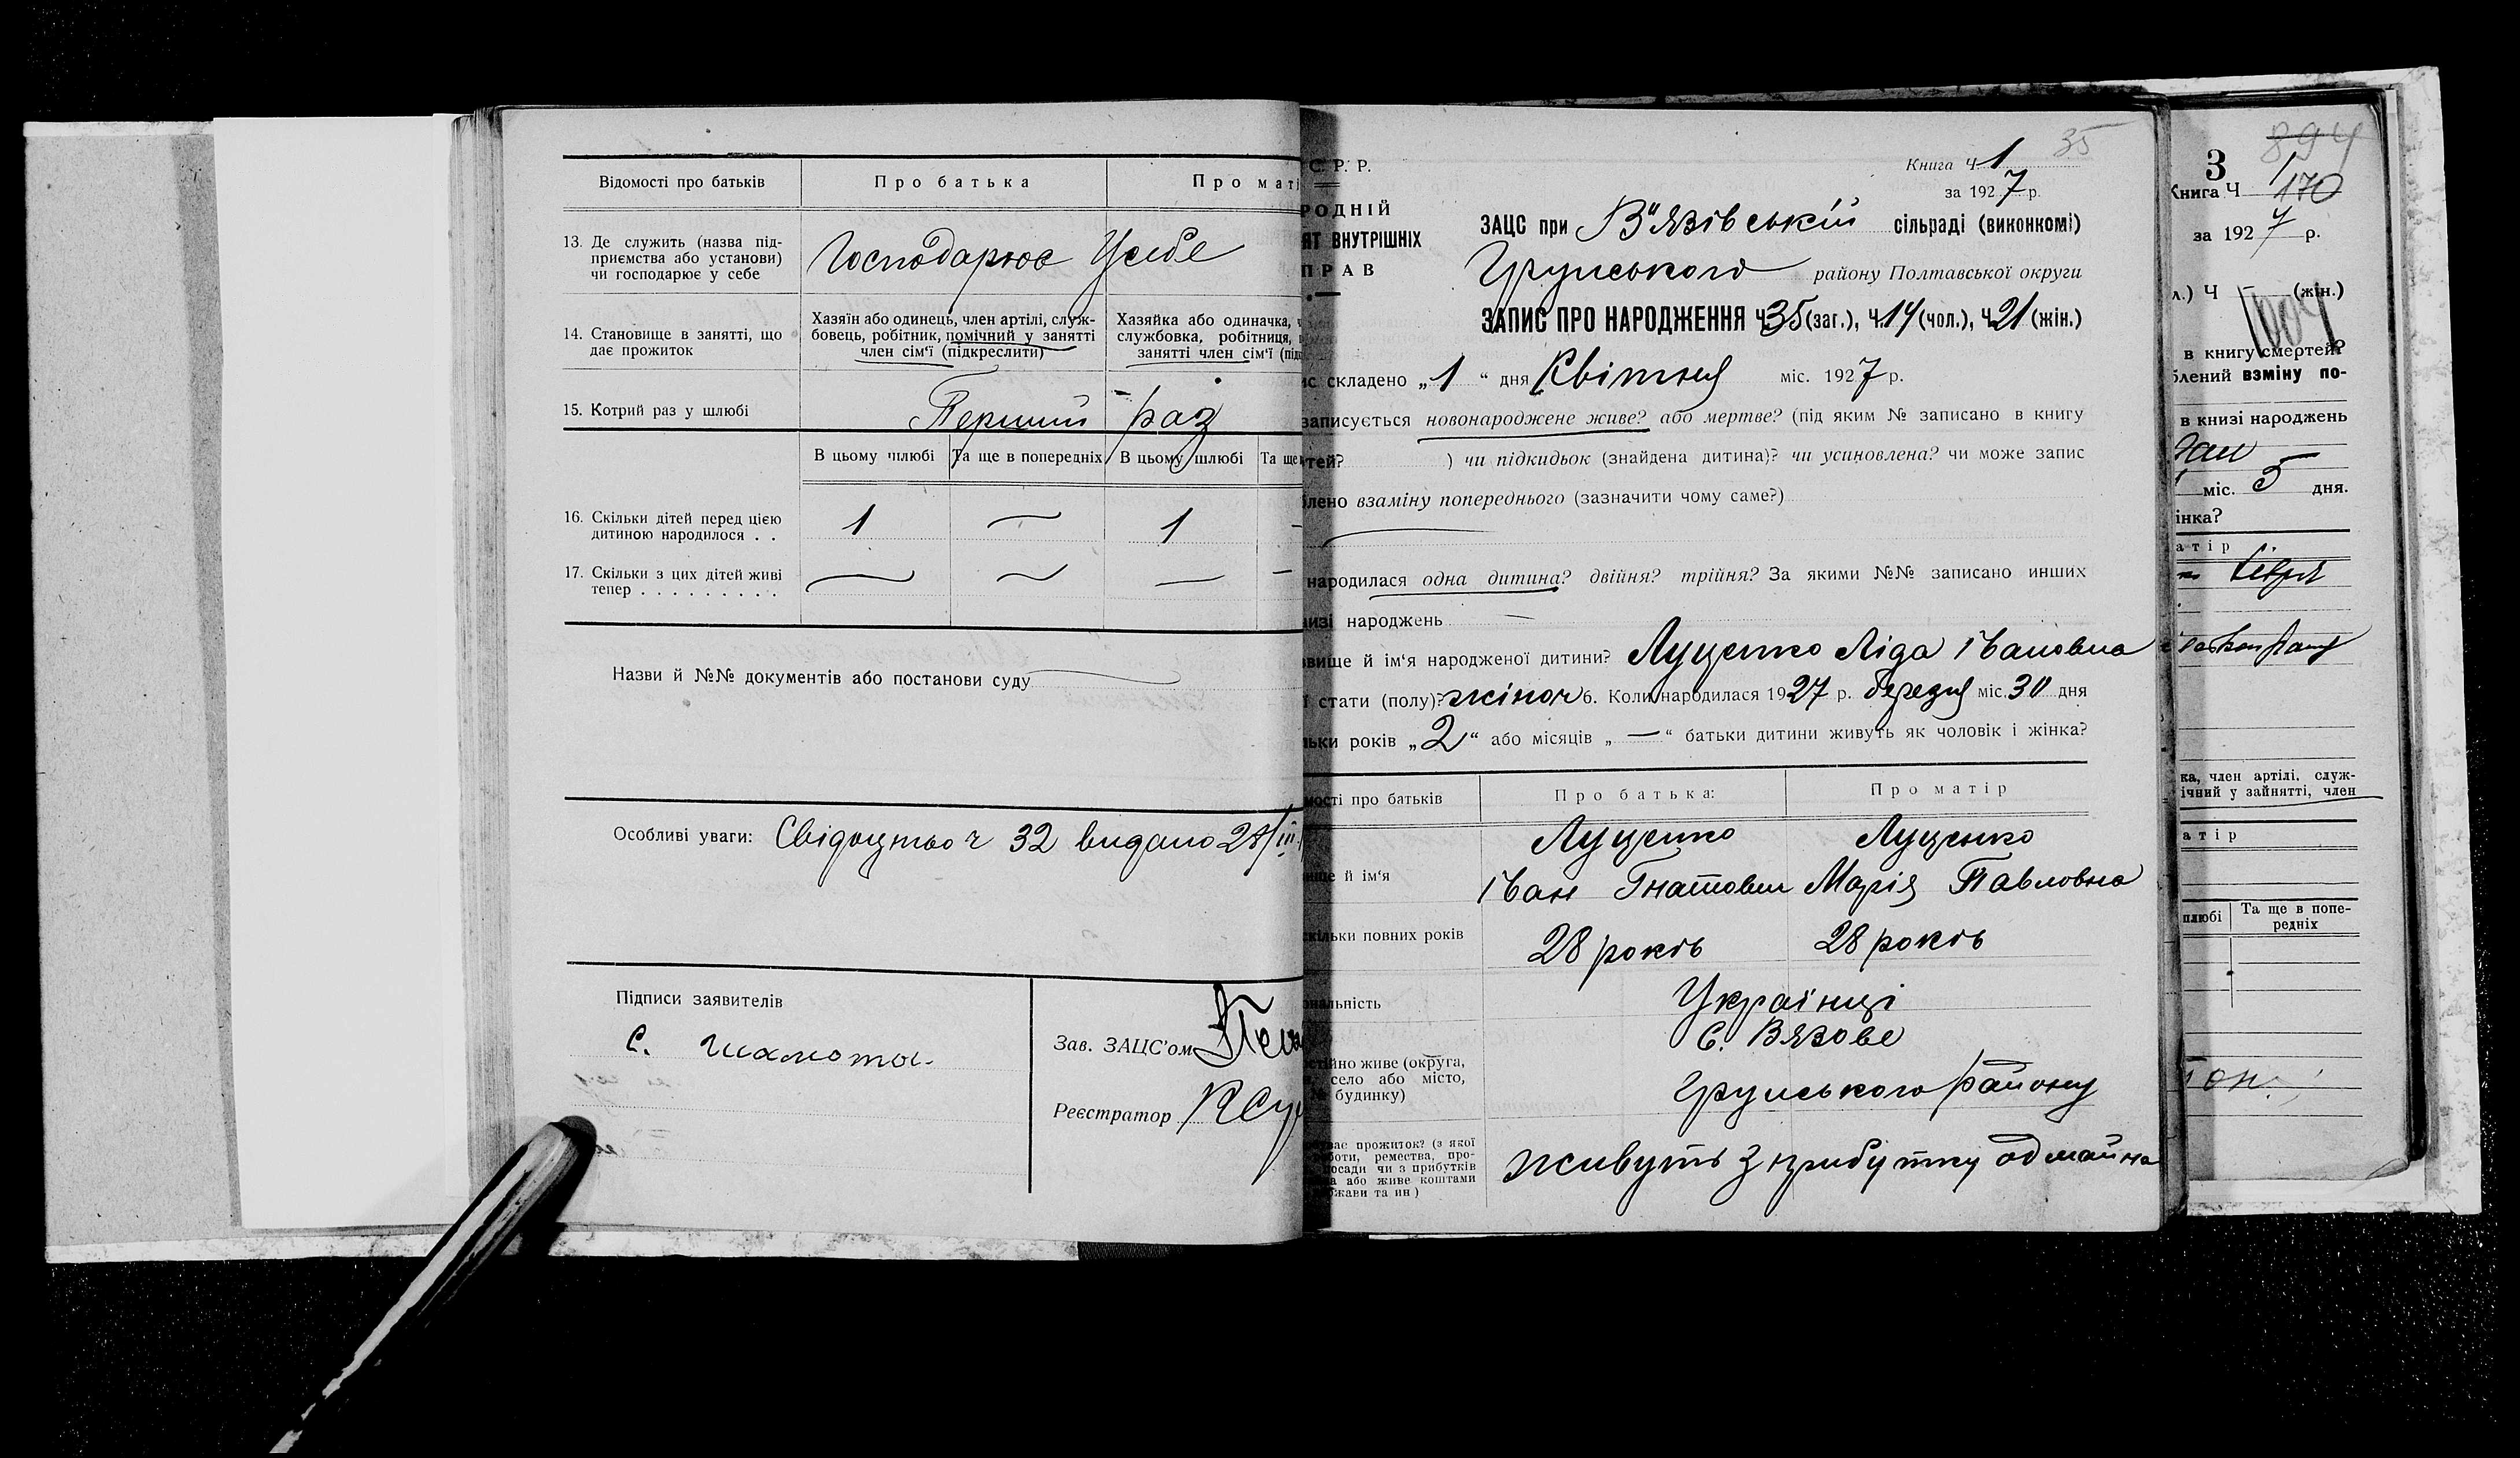 Відомості про батьків
Про батька
Про маті
13. Де служить (назва під-
приємства або установи)
чи господарює у себе
Господарює Усебе
14. Становище в занятті, що
дає прожиток
Хазяїн або одинець, член артілі, служ-
бовець, робітник, помічний у занятті
член сім'ї (підкреслити)
Хазяйка або одиначка,
службовка, робітниця,
занятті член сім'ї (під
15. Котрий раз у шлюбі
Перший раз
В цьому шлюбі
Та ще в попередніх
В цьому шлюбі
Та ще
16. Скільки дітей перед цією
дитиною народилося . .
1 — 1 —
17. Скільки з цих дітей живі
тепер . . . . . . . . .
— — — —
Назви й №№ документів або постанови суду —
Особливі уваги: Свідоцтво ч 32 видано 28/III
Підписи заявителів
С. Шамота
Зав. ЗАЦС'ом
Реєстратор
С. Р. Р.
РОДНІЙ
ЯТ ВНУТРІШНІХ
ПРАВ
35
Книга Ч. 1
за 1927 р.
ЗАЦС при В'язівській сільраді (виконкомі)
Грунського району Полтавської округи
ЗАПИС ПРО НАРОДЖЕННЯ Ч 35 (заг.), Ч. 14 (чол.), Ч. 21 (жін.)
ис складено „1“ дня Квітня міс. 1927 р.
записується новонароджене живе? або мертве? (під яким № записано в книгу
тей? ) чи підкидьок (знайдена дитина)? чи усиновлена? чи може запис
блено взаміну попереднього (зазначити чому саме?)
—
народилася одна дитина? двійня? трійня? За якими №№ записано инших
изі народжень —
звище й ім'я народженої дитини? Луценко Ліда Івановна
ї стати (полу)? жіноч 6. Коли народилася 1927 р. березня міс. 30 дня
льки років „2“ або місяців „—“ батьки дитини живуть як чоловік і жінка?
мості про батьків
Про батька:
Про матір
ище й ім'я
Луценко
Іван Гнатович
Луценко
Марія Павловна
скільки повних років
28 років
28 років
ональність
Українці
стійно живе (округа,
село або місто,
№ будинку)
С. Вязове
Грунського району
уває прожиток? (з якої
боти, ремества, про-
посади чи з прибутків
а або живе коштами
жави та ин)
живуть з прибутку од майна
894
3
Книга Ч 1
170
за 1927 р.
л.) Ч — (жін.)
1004
в книгу смертей?
блений взміну по-
в книзі народжень
міс. 5 дня.
інка?
атір
ка, член артілі, служ-
ічний у зайнятті, член
атір
шлюбі
Та ще в попе-
редніх